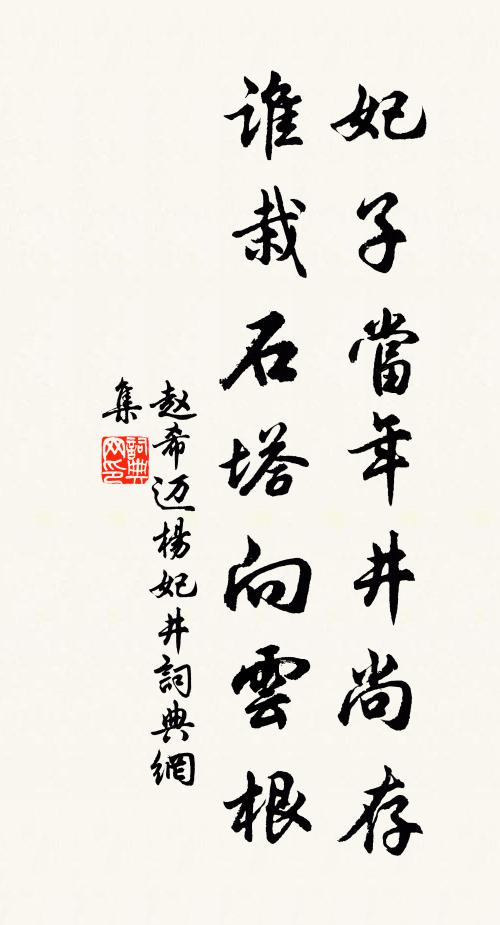 妃子當年井尚存
谁栽石塔向雲根
赵希迈楊妃井詞典網
集
詞典
网印